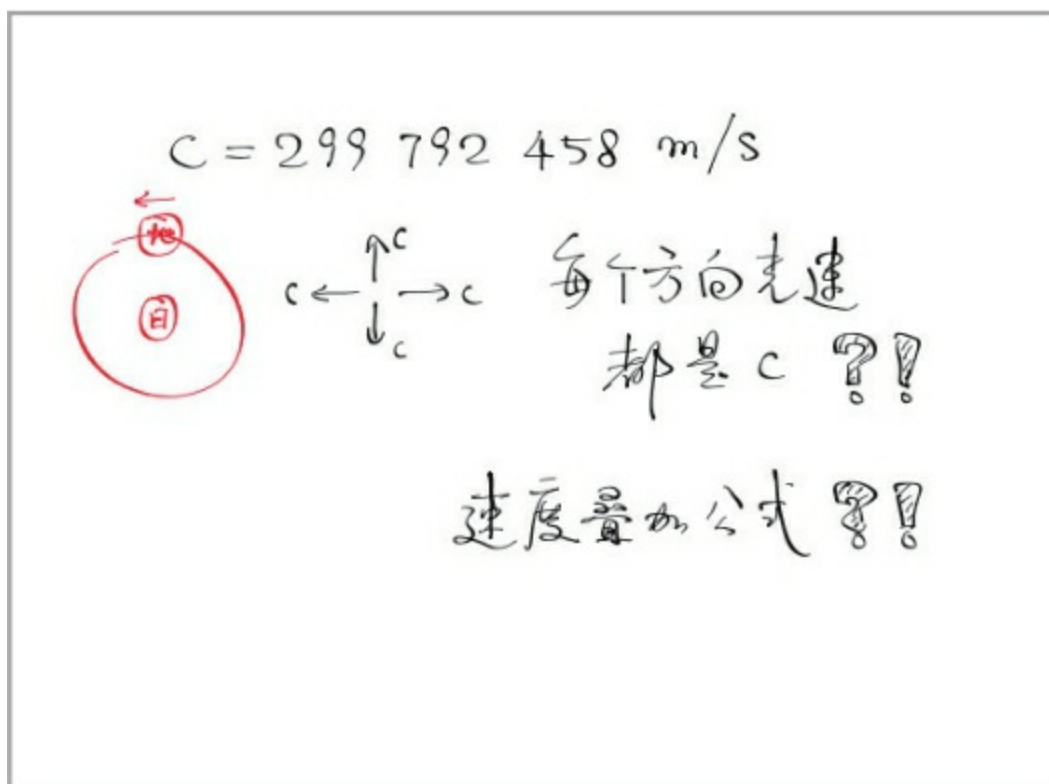 C = 299 792 458 m/s
地
日
c
c
c
c
每个方向光速
都是 c ?!
速度叠加公式 ?!